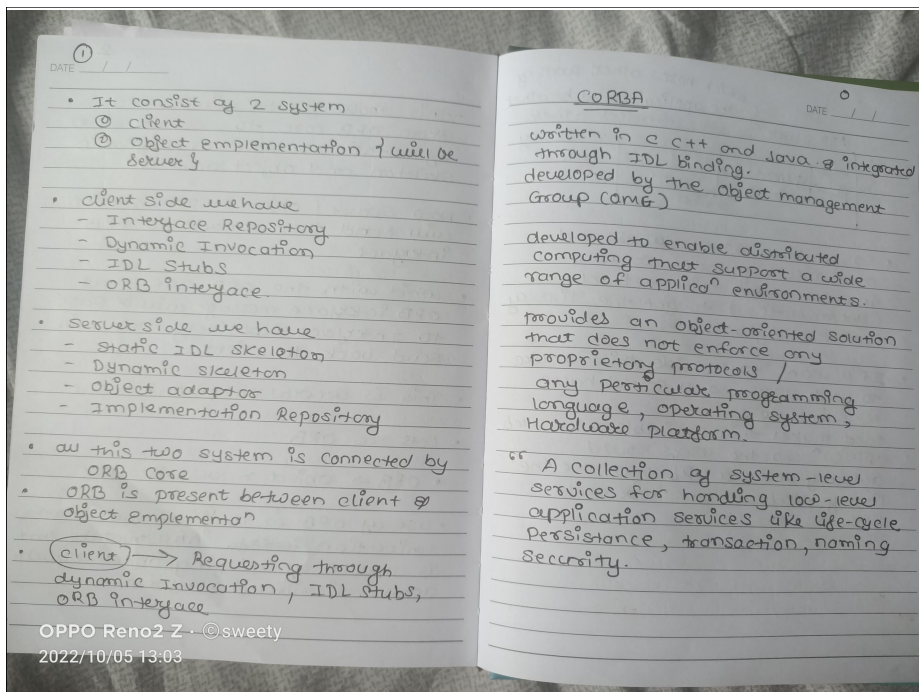 ①
DATE / /
• It consist of 2 system
① client
② object emplementation } will be
server }
• client side we have
- Interface Repository
- Dynamic Invocation
- IDL Stubs
- ORB interface.
• server side we have
- Static IDL skeleton
- Dynamic skeleton
- object adaptor
- Implementation Repository
• all this two system is connected by
ORB core
• ORB is present between client &
object emplementan
• client → Requesting through
dynamic Invocation, IDL stubs,
ORB interface
OPPO Reno2 Z · ©sweety
2022/10/05 13:03
CORBA
0
DATE / /
written in C C++ and Java & integrated
through IDL binding.
developed by the object management
Group (OMG)
developed to enable distributed
computing that support a wide
range of applican environments.
provides an object-oriented solution
that does not enforce any
proprietary protocols /
any perticular programming
language, operating system,
Hardware platform.
“ A collection of system-level
services for handling low-level
application services like life-cycle
Persistance, transaction, naming
security.